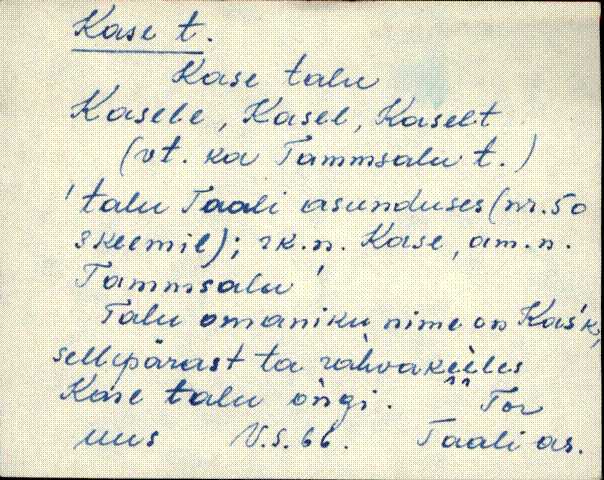 Kase t.
Kase talu
Kasele, Kasel, Kaselt
(vt. ka Tammsalu t.)
'talu Taali asunduses (nr. 50
skeemil); rk.n. Kase, am.n.
Tammsalu'
Talu omaniku nime on Kaśk,
sellepärast ta rahvakeeles
Kase talu ongi. Tor
uus V.S. 66. Taali as.